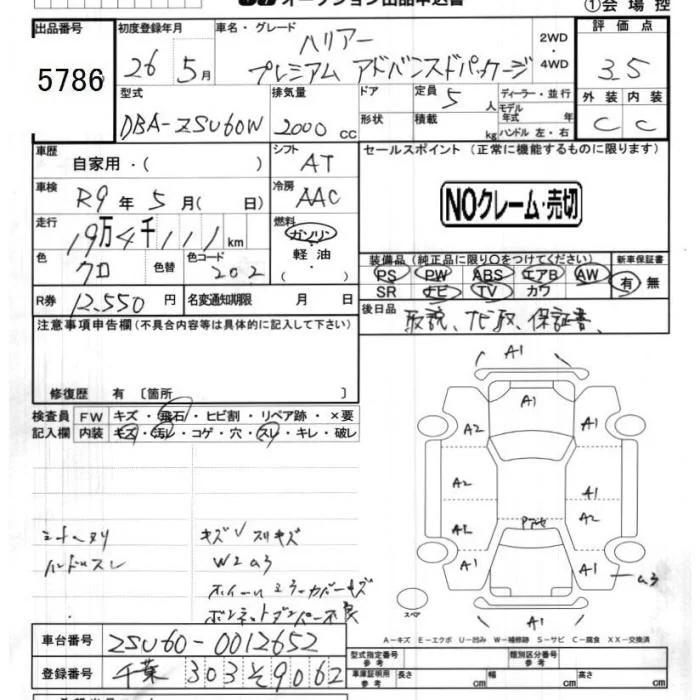 オークション出品申込書
①会場控
出品番号 初度登録年月 車名・グレード 評価点
5786 26年 5月 ハリアー プレミアム アドバンスドパッケージ 2WD・4WD 3.5
型式 排気量 ドア 定員 5人 ディーラー・並行 外装 内装
DBA-ZSU60W 2000cc 形状 積載 kg モデル年式 年 ハンドル 左・右 C C
車歴 自家用・( ) シフト AT セールスポイント (正常に機能するものに限ります)
車検 R9年 5月( 日) 冷房 AAC NOクレーム・売切
走行 19万4千111km 燃料 ガソリン・軽油・( )
色 クロ 色替 色コード 202 装備品(純正品に限り○をつけてください) 新車保証書
PS PW ABS エアB AW 有 無
SR ナビ TV カワ
R券 12,550円 名変通知期限 月 日 後日品 取説、ナビ取、保証書、
注意事項申告欄(不具合内容等は具体的に記入して下さい)
修復歴 有〔箇所 〕
検査員 FW キズ・飛石・ヒビ割・リペア跡・×要
記入欄 内装 キズ・汚レ・コゲ・穴・スレ・キレ・破レ
A1
A1
A2 A1
A2 A1
A2 A2
A1 A1
A1
シートヘタリ キズ√スリキズ
ハンドルスレ W2 a3
ホイールミラーカバーキズ
ボンネットダンパー不良
スペア
A-キズ E-エクボ U-凹み W-補修跡 S-サビ C-腐食 XX-交換済
車台番号 ZSU60-0012652
登録番号 千葉 303 そ 9062
型式指定番号 参考 類別区分番号 参考
車庫証明用 参考 長さ cm 幅 cm 高さ cm